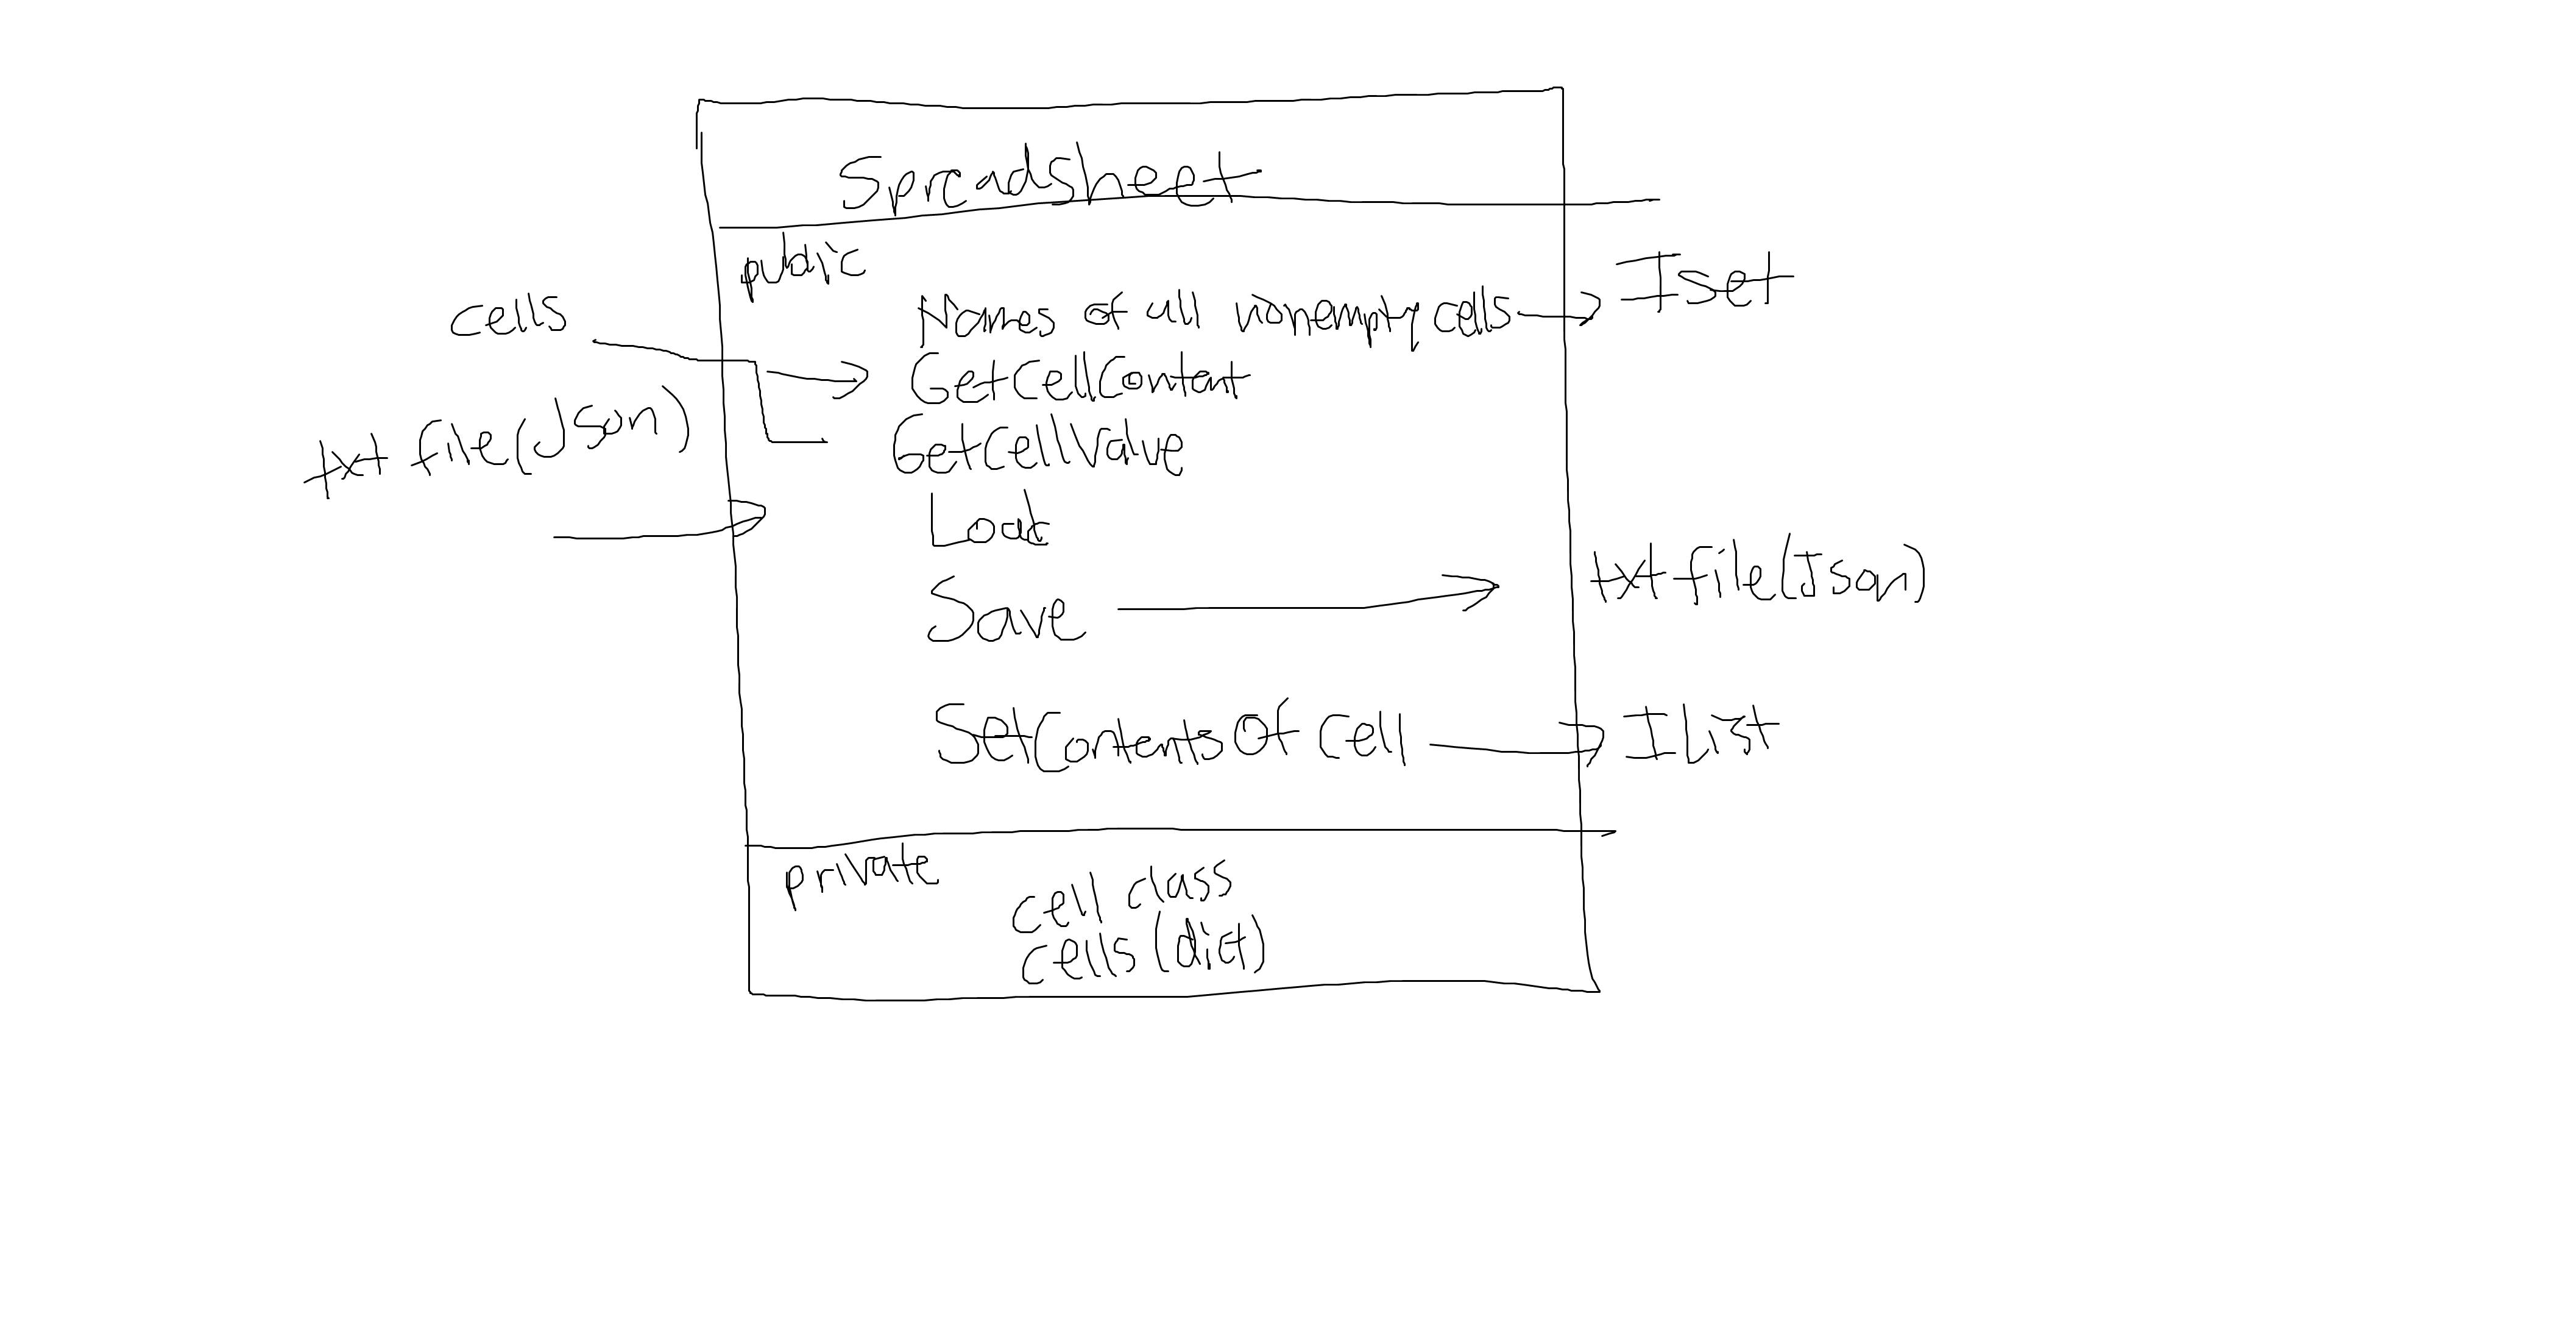 Spreadsheet
public
cells
Names of all nonempty cells
Iset
GetCellContent
txt file(Json)
GetCellValue
Load
Save
txt file(Json)
SetContentsOf Cell
IList
private
cell class
cells (dict)